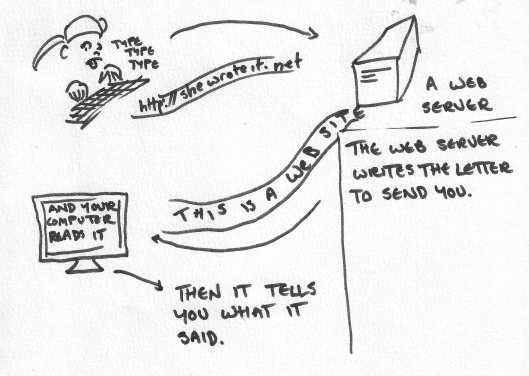 TYPE
TYPE
TYPE
http://shewroteit.net
A WEB
SERVER
THE WEB SERVER
WRITES THE LETTER
TO SEND YOU.
THIS IS A WEB SITE
AND YOUR
COMPUTER
READS IT
THEN IT TELLS
YOU WHAT IT
SAID.